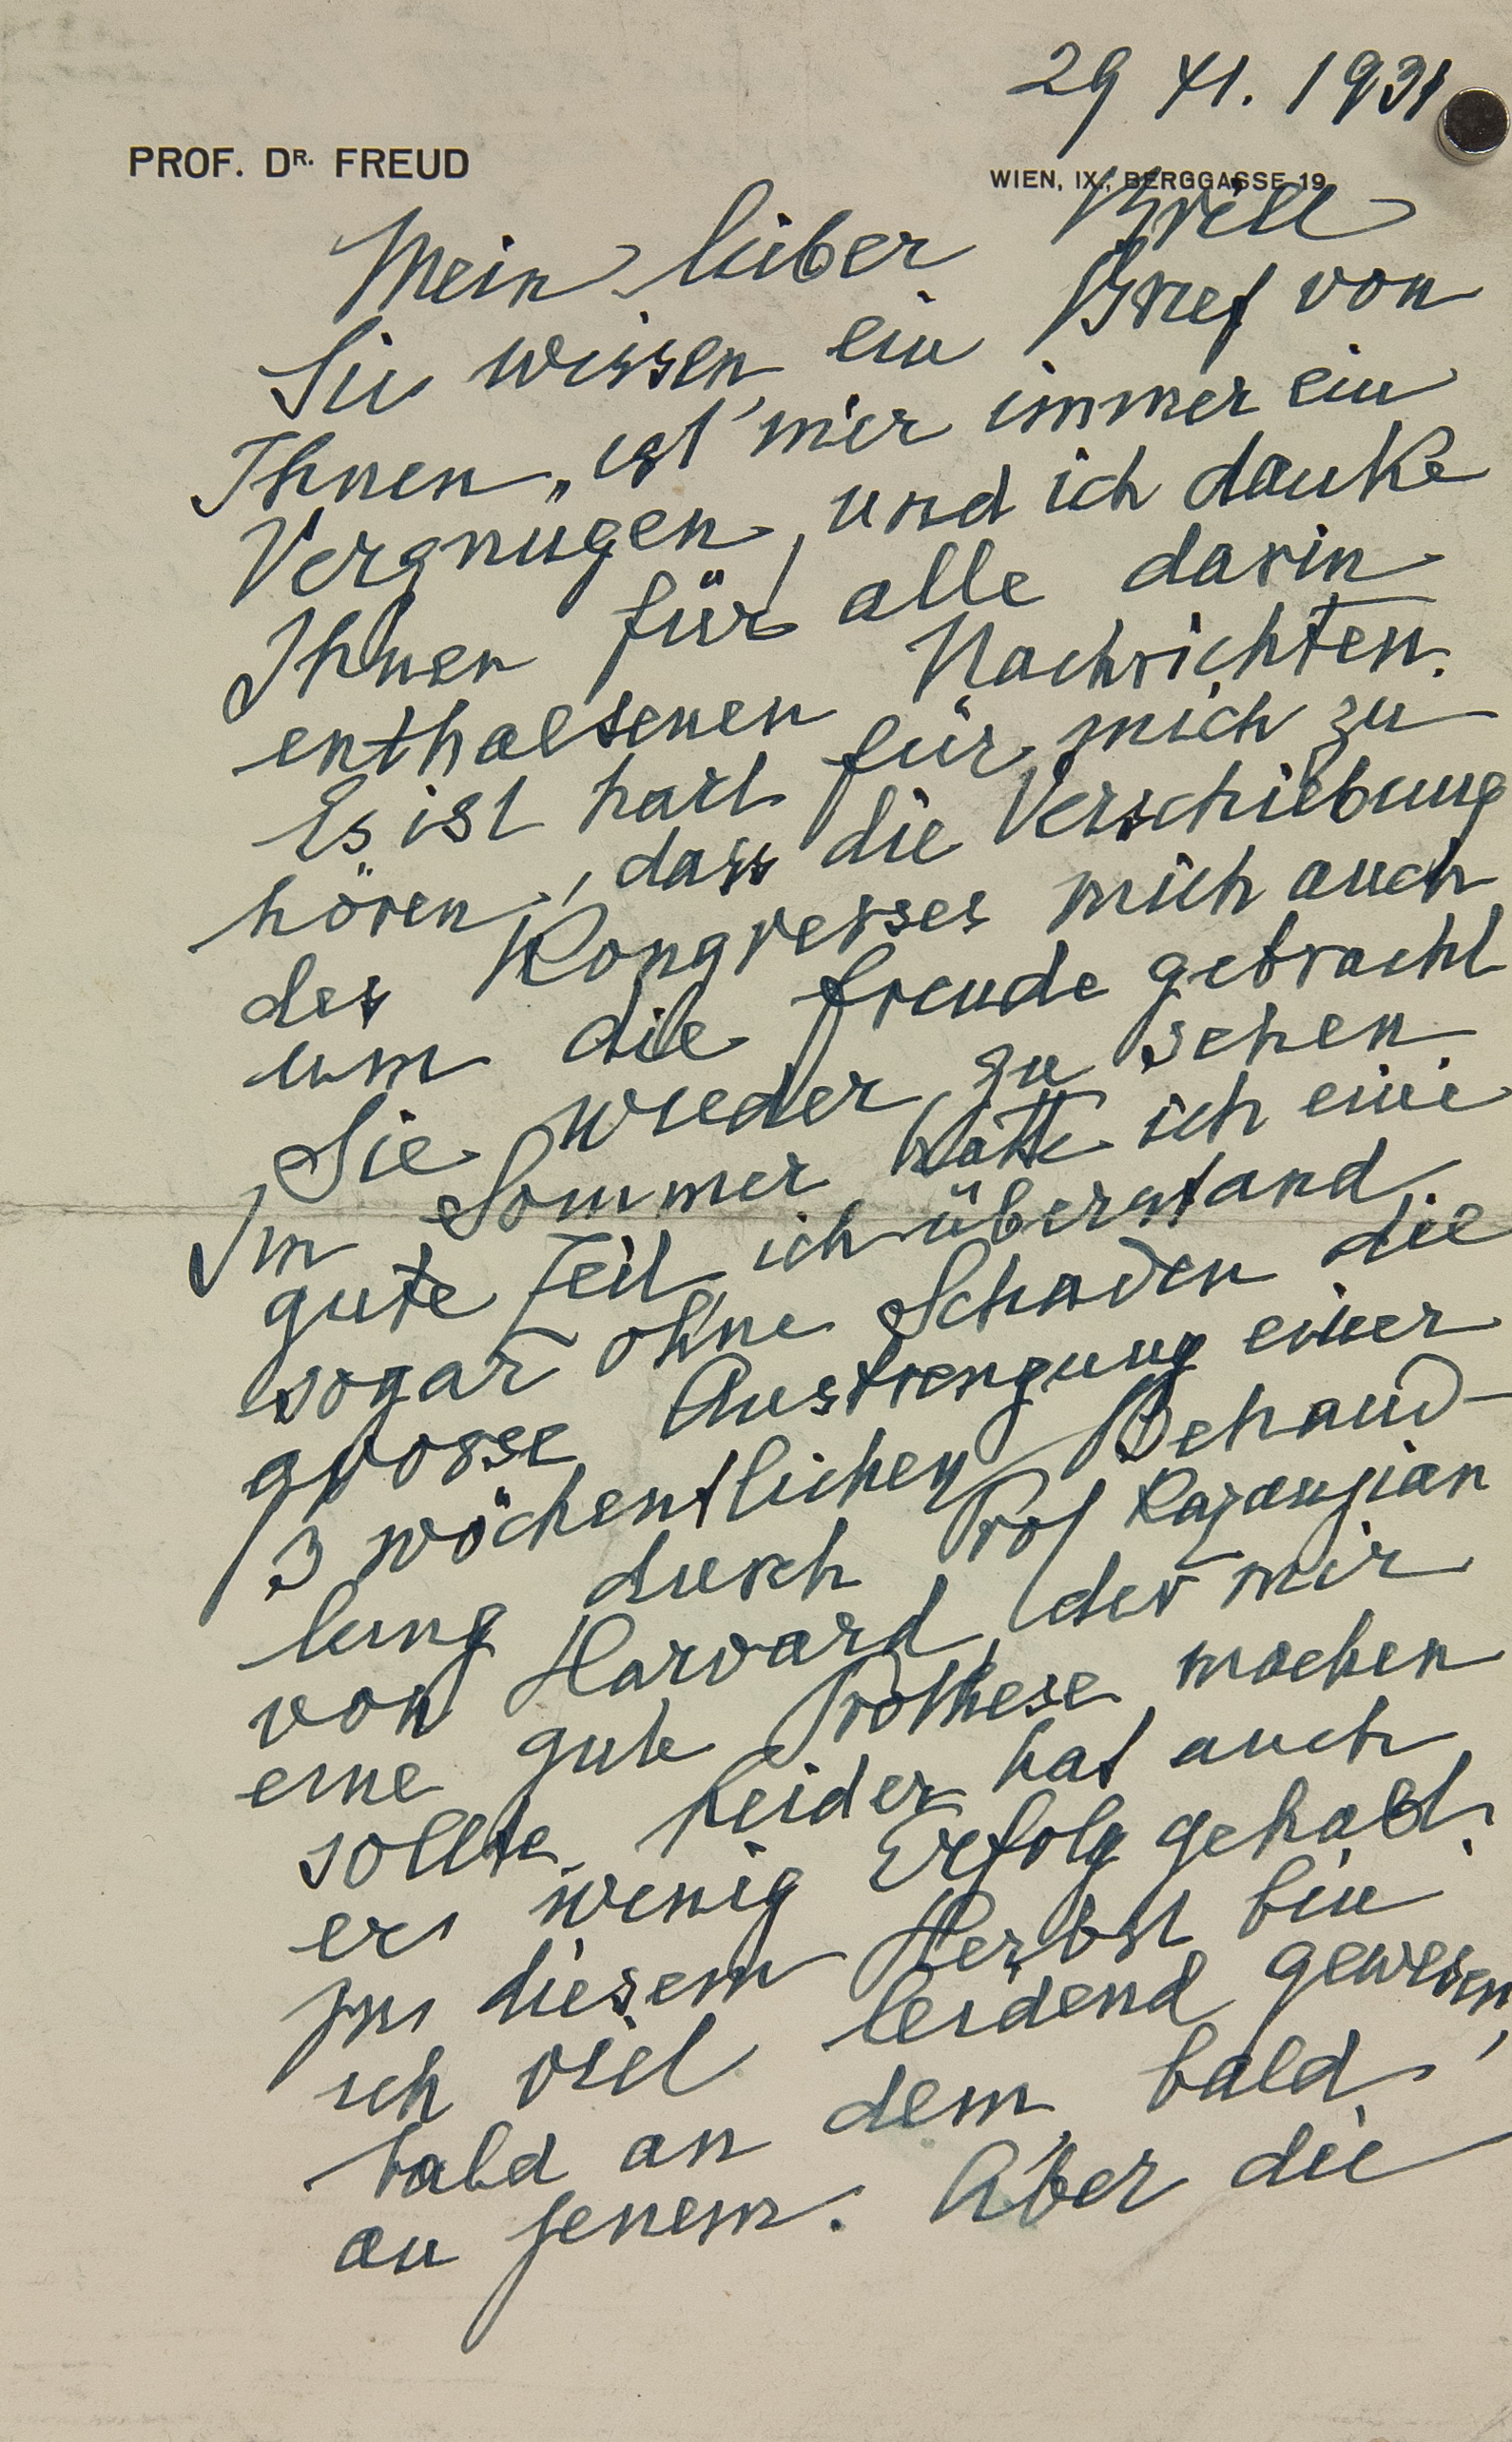 29 XI. 1931
PROF. DR. FREUD
WIEN, IX., BERGGASSE 19
Mein lieber Brill
Sie wissen, ein Brief von
Ihnen, ist mir immer ein
Vergnugen, und ich danke
Ihnen für alle darin
enthaltenen Nachrichten.
Es ist hart für mich zu
hören, dass die Verschiebung
des Kongresses mich auch
um die Freude gebracht
Sie wieder zu sehen.
Im Sommer hatte ich eine
gute Zeit, ich überstand
sogar ohne Schaden die
grosse Anstrengung einer
3 wöchentlichen Behand-
lung durch Prof Kazanjian
von Harvard, der mir
eine gute Prothese machen
sollte. Leider hat auch
er wenig Erfolg gehabt.
In diesem Herbst bin
ich viel leidend gewesen,
bald an dem, bald
an jenem. Aber die